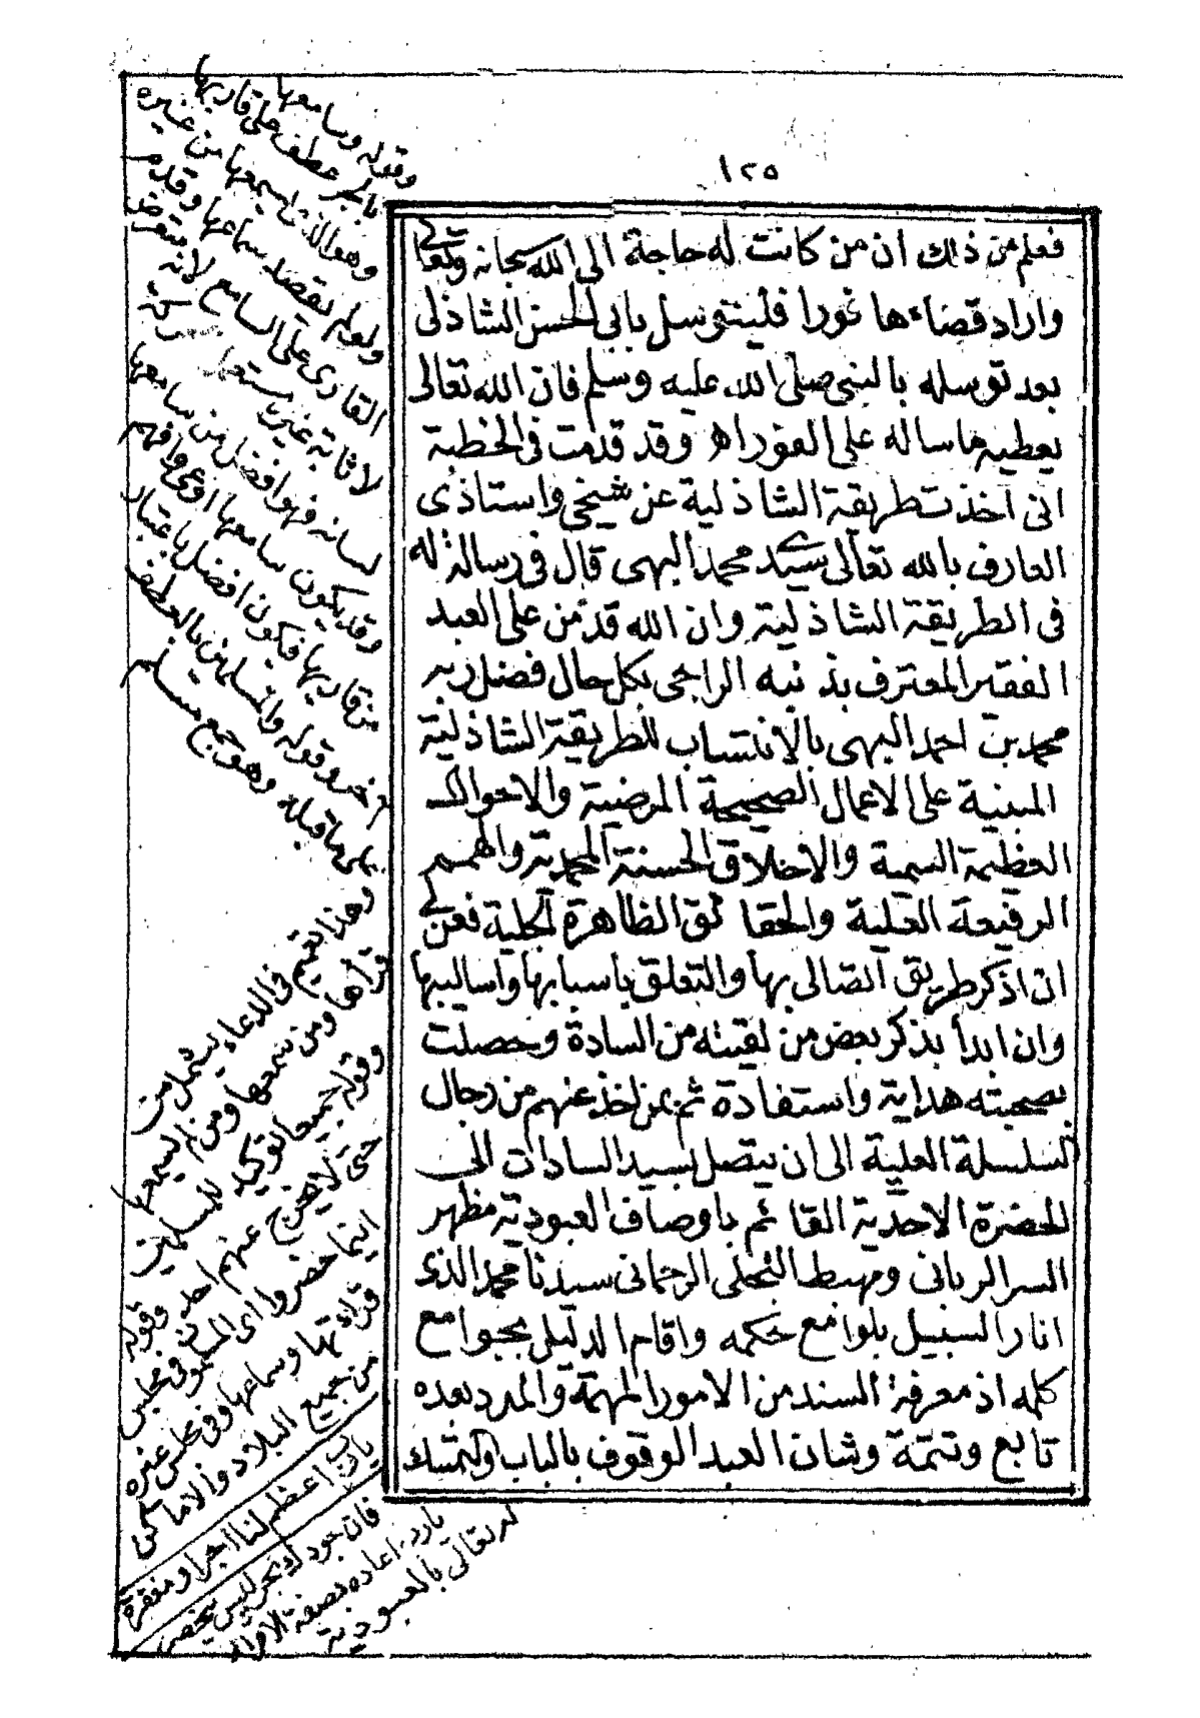 ١٢٥
فعلم من ذلك ان من كانت له حاجة الى الله سبحانه وتعالى
واراد قضاءها فورا فليتوسل بابى الحسن الشاذلى
بعد توسله بالنبى صلى الله عليه وسلم فان الله تعالى
يعطيه ما ساله على الفور اه وقد قدمت فى الخطبة
انى اخذت طريقة الشاذلية عن شيخى واستاذى
العارف بالله تعالى سيدى محمد البهى قال فى رسالة له
فى الطريقة الشاذلية وان الله قد من على العبد
الفقير المعترف بذنبه الراجى بكل حال فضل ربه
محمد بن احمد البهى بالانتساب للطريقة الشاذلية
المبنية على الاعمال الصحيحة المرضية والاحوال
العظيمة السمية والاخلاق الحسنة المحمدية والهمم
الرفيعة العلية والحقائق الظاهرة الجلية فعن لى
ان اذكر طريق اتصالى بها والتعلق باسبابها واساليبها
وان ابدأ بذكر بعض من لقيته من السادة وحصلت
بصحبته هداية واستفادة ثم بمن اخذ عنهم من رجال
السلسلة العلية الى ان يتصل بسيد السادات الى
الحضرة الاحدية القائم باوصاف العبودية مظهر
السر الربانى ومهبط التجلى الرحمانى سيدنا محمد الذى
انار السبيل بلوامع حكمه واقام الدليل بجوامع
كلمه اذ معرفة السند من الامور المهمة والمدد بعده
تابع وتتمة وشان العبد الوقوف بالباب والتمسك
وقوله وسامعها
بالجر عطف على قاريها
وهو الذى اسمعها من غيره
ولو لم يقصد سماعها وقدم
القارى على السامع لانه متعرض
لاثابة غيره مستعمل حركة
لسانه فهو افضل من سامعها
وقد يكون سامعها اوعى وافهم
من قاريها فيكون افضل باعتبار
اخر وقوله والمسلمين بالعطف
على ما قبله وهو جمع مسلم
وهذا تعميم فى الدعاء يشمل من
قرأها ومن سمعها ومن لم يسمعها
وقوله جميعا توكيد للمسلمين
حتى لا يخرج عنهم احد وقوله
اينما حضروا اى المسلمون فى مجلس
قراءتها وسماعها وفى مجلس غيره
من جميع البلاد والاماكن
يارب اعظم لنا اجرا ومغفرة
فان جودك بحر ليس ينحصر
يارد اعاده بصفة الاقرار
له تعالى بالعبودية